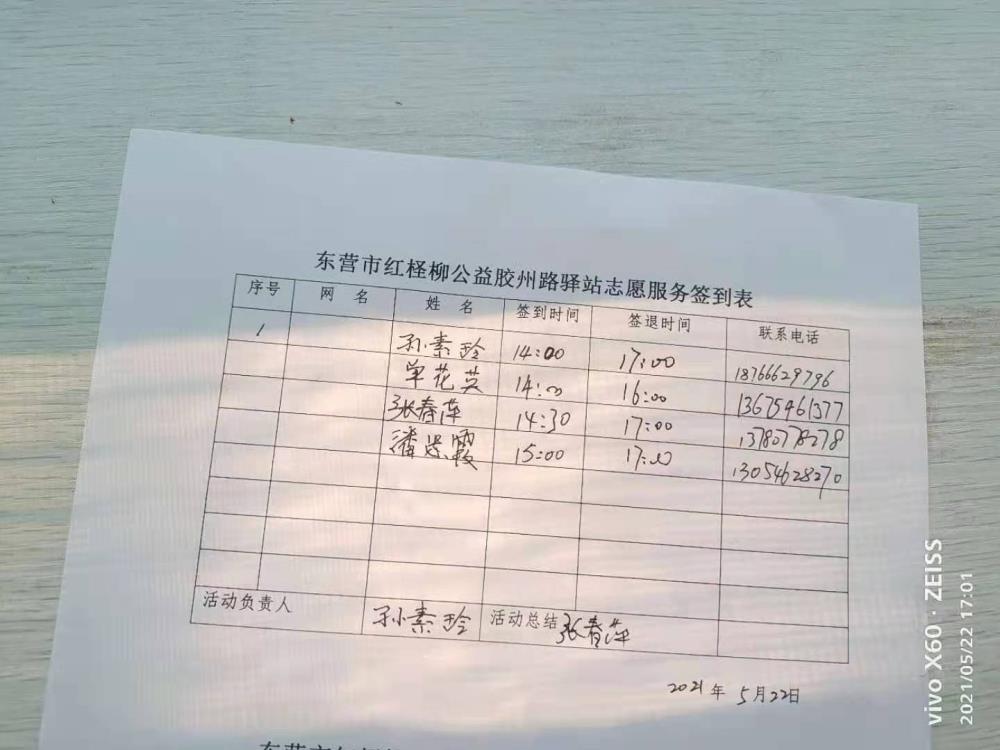 东营市红柽柳公益胶州路驿站志愿服务签到表
序号 网 名 姓 名 签到时间 签退时间 联系电话
1 孙素玲 14:00 17:00 18766629796
单花英 14:00 16:00 13675461377
张春萍 14:30 17:00
潘思霞 15:00 17:00 13054628270
活动负责人 孙素玲 活动总结 张春萍
2021年 5月22日
vivo X60 · ZEISS
2021/05/22 17:01